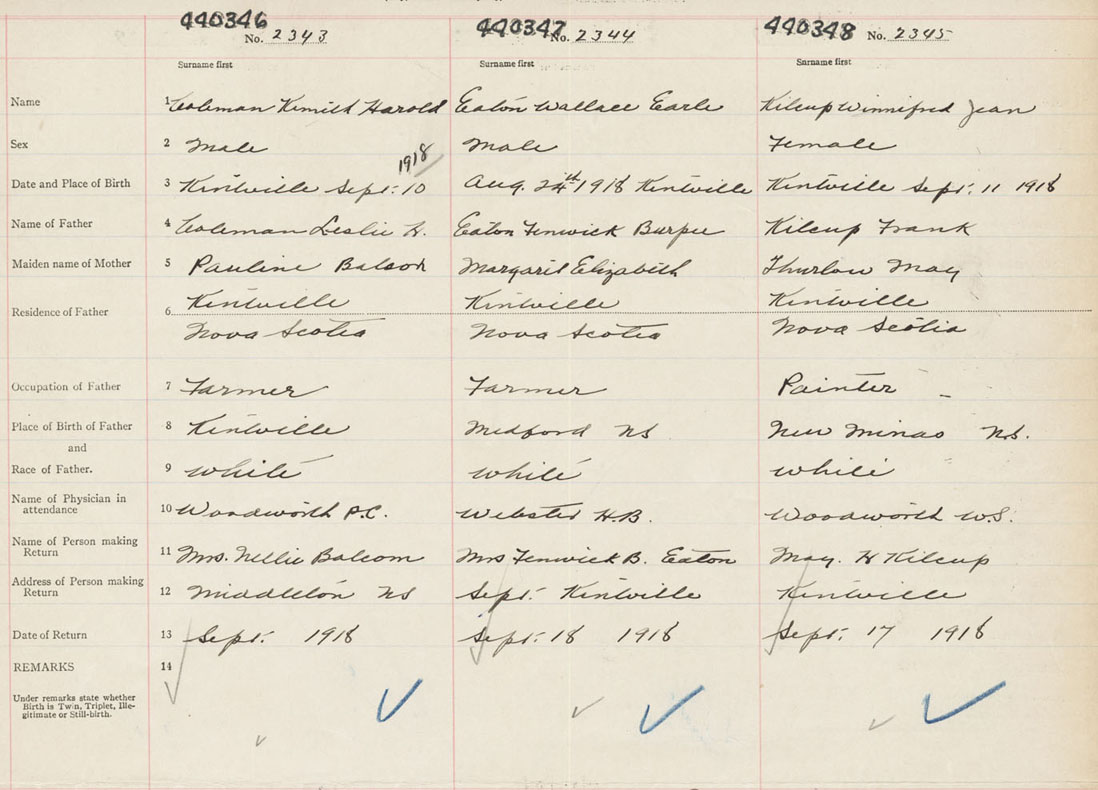 440346 No. 2343 440347 No. 2344 440348 No. 2345
Surname first Surname first Surname first
Name 1 Coleman Harold Eaton Wallace Earle Kilcup Winnifred Jean
Sex 2 Male Male Female
1918
Date and Place of Birth 3 Kentville Sept. 10 Aug. 24th 1918 Kentville Kentville Sept. 11 1918
Name of Father 4 Coleman Leslie H. Eaton Fenwick Burpee Kilcup Frank
Maiden name of Mother 5 Pauline Margaret Elizabeth Thurlow May
Kentville Kentville Kentville
Residence of Father 6
Nova Scotia Nova Scotia Nova Scotia
Occupation of Father 7 Farmer Farmer Painter
Place of Birth of Father 8 Kentville Medford NS New Minas N.S.
and
Race of Father. 9 White White White
Name of Physician in
attendance 10 Woodworth P.C. Webster H.B. Woodworth W.S.
Name of Person making
Return 11 Mrs. Nellie Balcom Mrs Fenwick B. Eaton May. H Kilcup
Address of Person making
Return 12 Middleton NS Sept. Kentville Kentville
Date of Return 13 Sept. 1918 Sept. 18 1918 Sept. 17 1918
REMARKS 14
Under remarks state whether
Birth is Twin, Triplet, Ille-
gitimate or Still-birth.